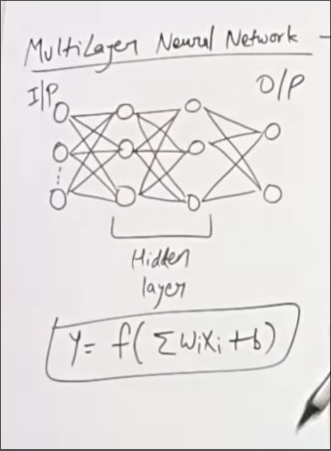 MultiLayer Neural Network -
I/P
O/P
Hidden
layer
y = f( ΣWiXi + b)